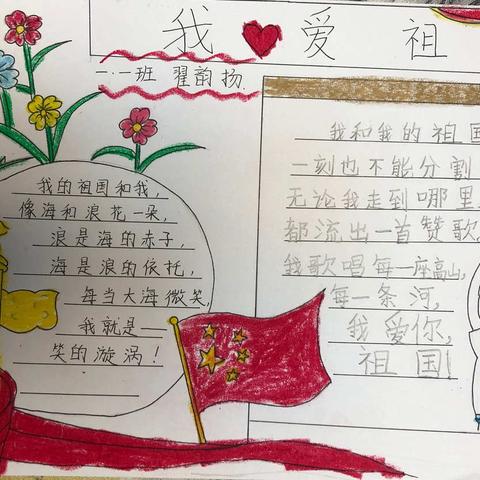 我爱祖
一.一班 翟韵扬
我的祖国和我,
像海和浪花一朵,
浪是海的赤子,
海是浪的依托,
每当大海微笑,
我就是一
笑的漩涡!
我和我的祖国
一刻也不能分割
无论我走到哪里,
都流出一首赞歌,
我歌唱每一座高山,
每一条河,
我爱你,
祖国!